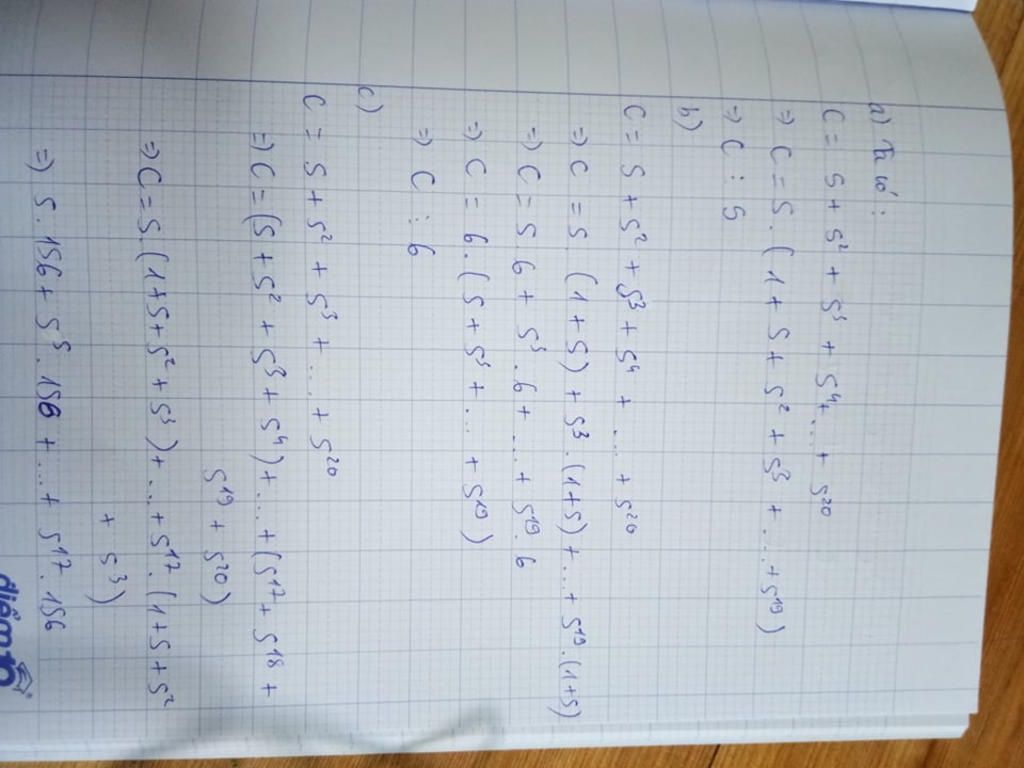 a) Ta có :
C = 5 + 5² + 5³ + 5⁴ + ... + 5²⁰
⇒ C = 5 . ( 1 + 5 + 5² + 5³ + ... + 5¹⁹ )
⇒ C ⋮ 5
b)
C = 5 + 5² + 5³ + 5⁴ + ... + 5²⁰
⇒ C = 5 . (1 + 5) + 5³ . (1+5) + ... + 5¹⁹ . (1+5)
⇒ C = 5 . 6 + 5³ . 6 + ... + 5¹⁹ . 6
⇒ C = 6 . ( 5 + 5³ + ... + 5¹⁹ )
⇒ C ⋮ 6
c)
C = 5 + 5² + 5³ + ... + 5²⁰
⇒ C = (5 + 5² + 5³ + 5⁴) + ... + (5¹⁷ + 5¹⁸ +
5¹⁹ + 5²⁰)
⇒ C = 5 . (1 + 5 + 5² + 5³) + ... + 5¹⁷ . (1 + 5 + 5²
+ 5³)
⇒ 5 . 156 + 5⁵ . 156 + ... + 5¹⁷ . 156
điểm 10